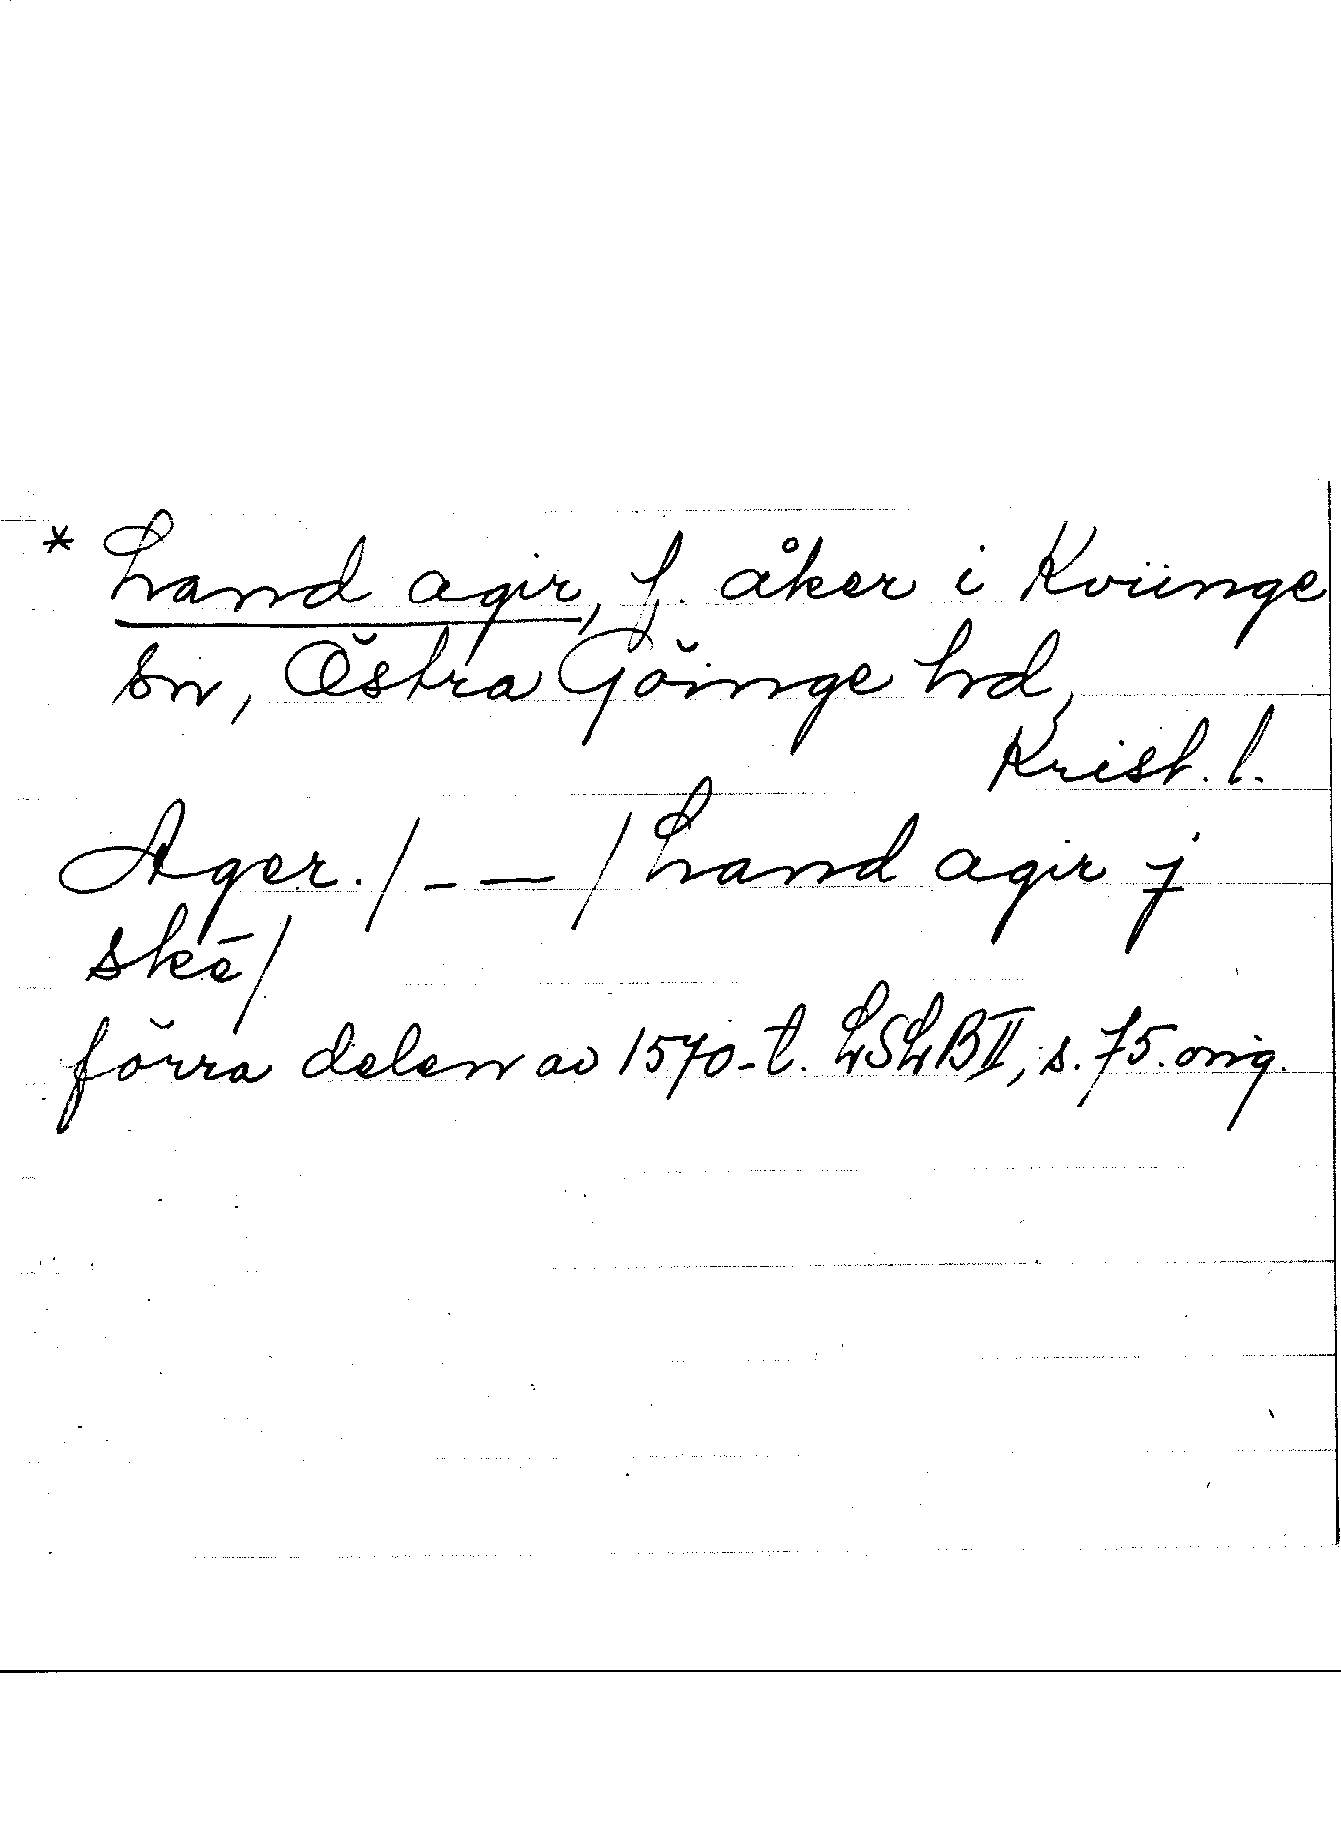 * Land agir, f. åker i Kviinge
sn, Östra Göinge hd,
Krist. l.
Ager. / – — / Land agir j
skē /
förra delen av 1570-t. LSLB II, s. 75. orig.